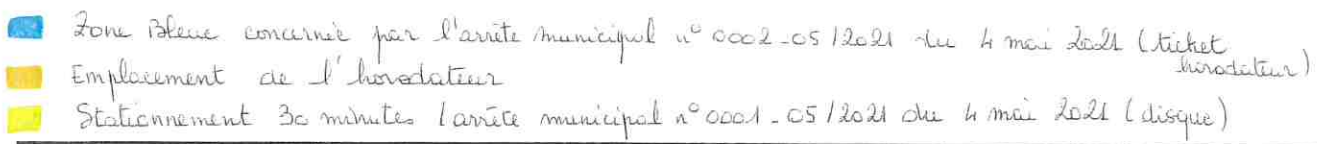 Zone Bleue concernée par l'arrêté municipal n° 0002-05/2021 du 4 mai 2021 (ticket
horodateur)
Emplacement de l'horodateur
Stationnement 30 minutes / arrêté municipal n° 0001-05/2021 du 4 mai 2021 (disque)